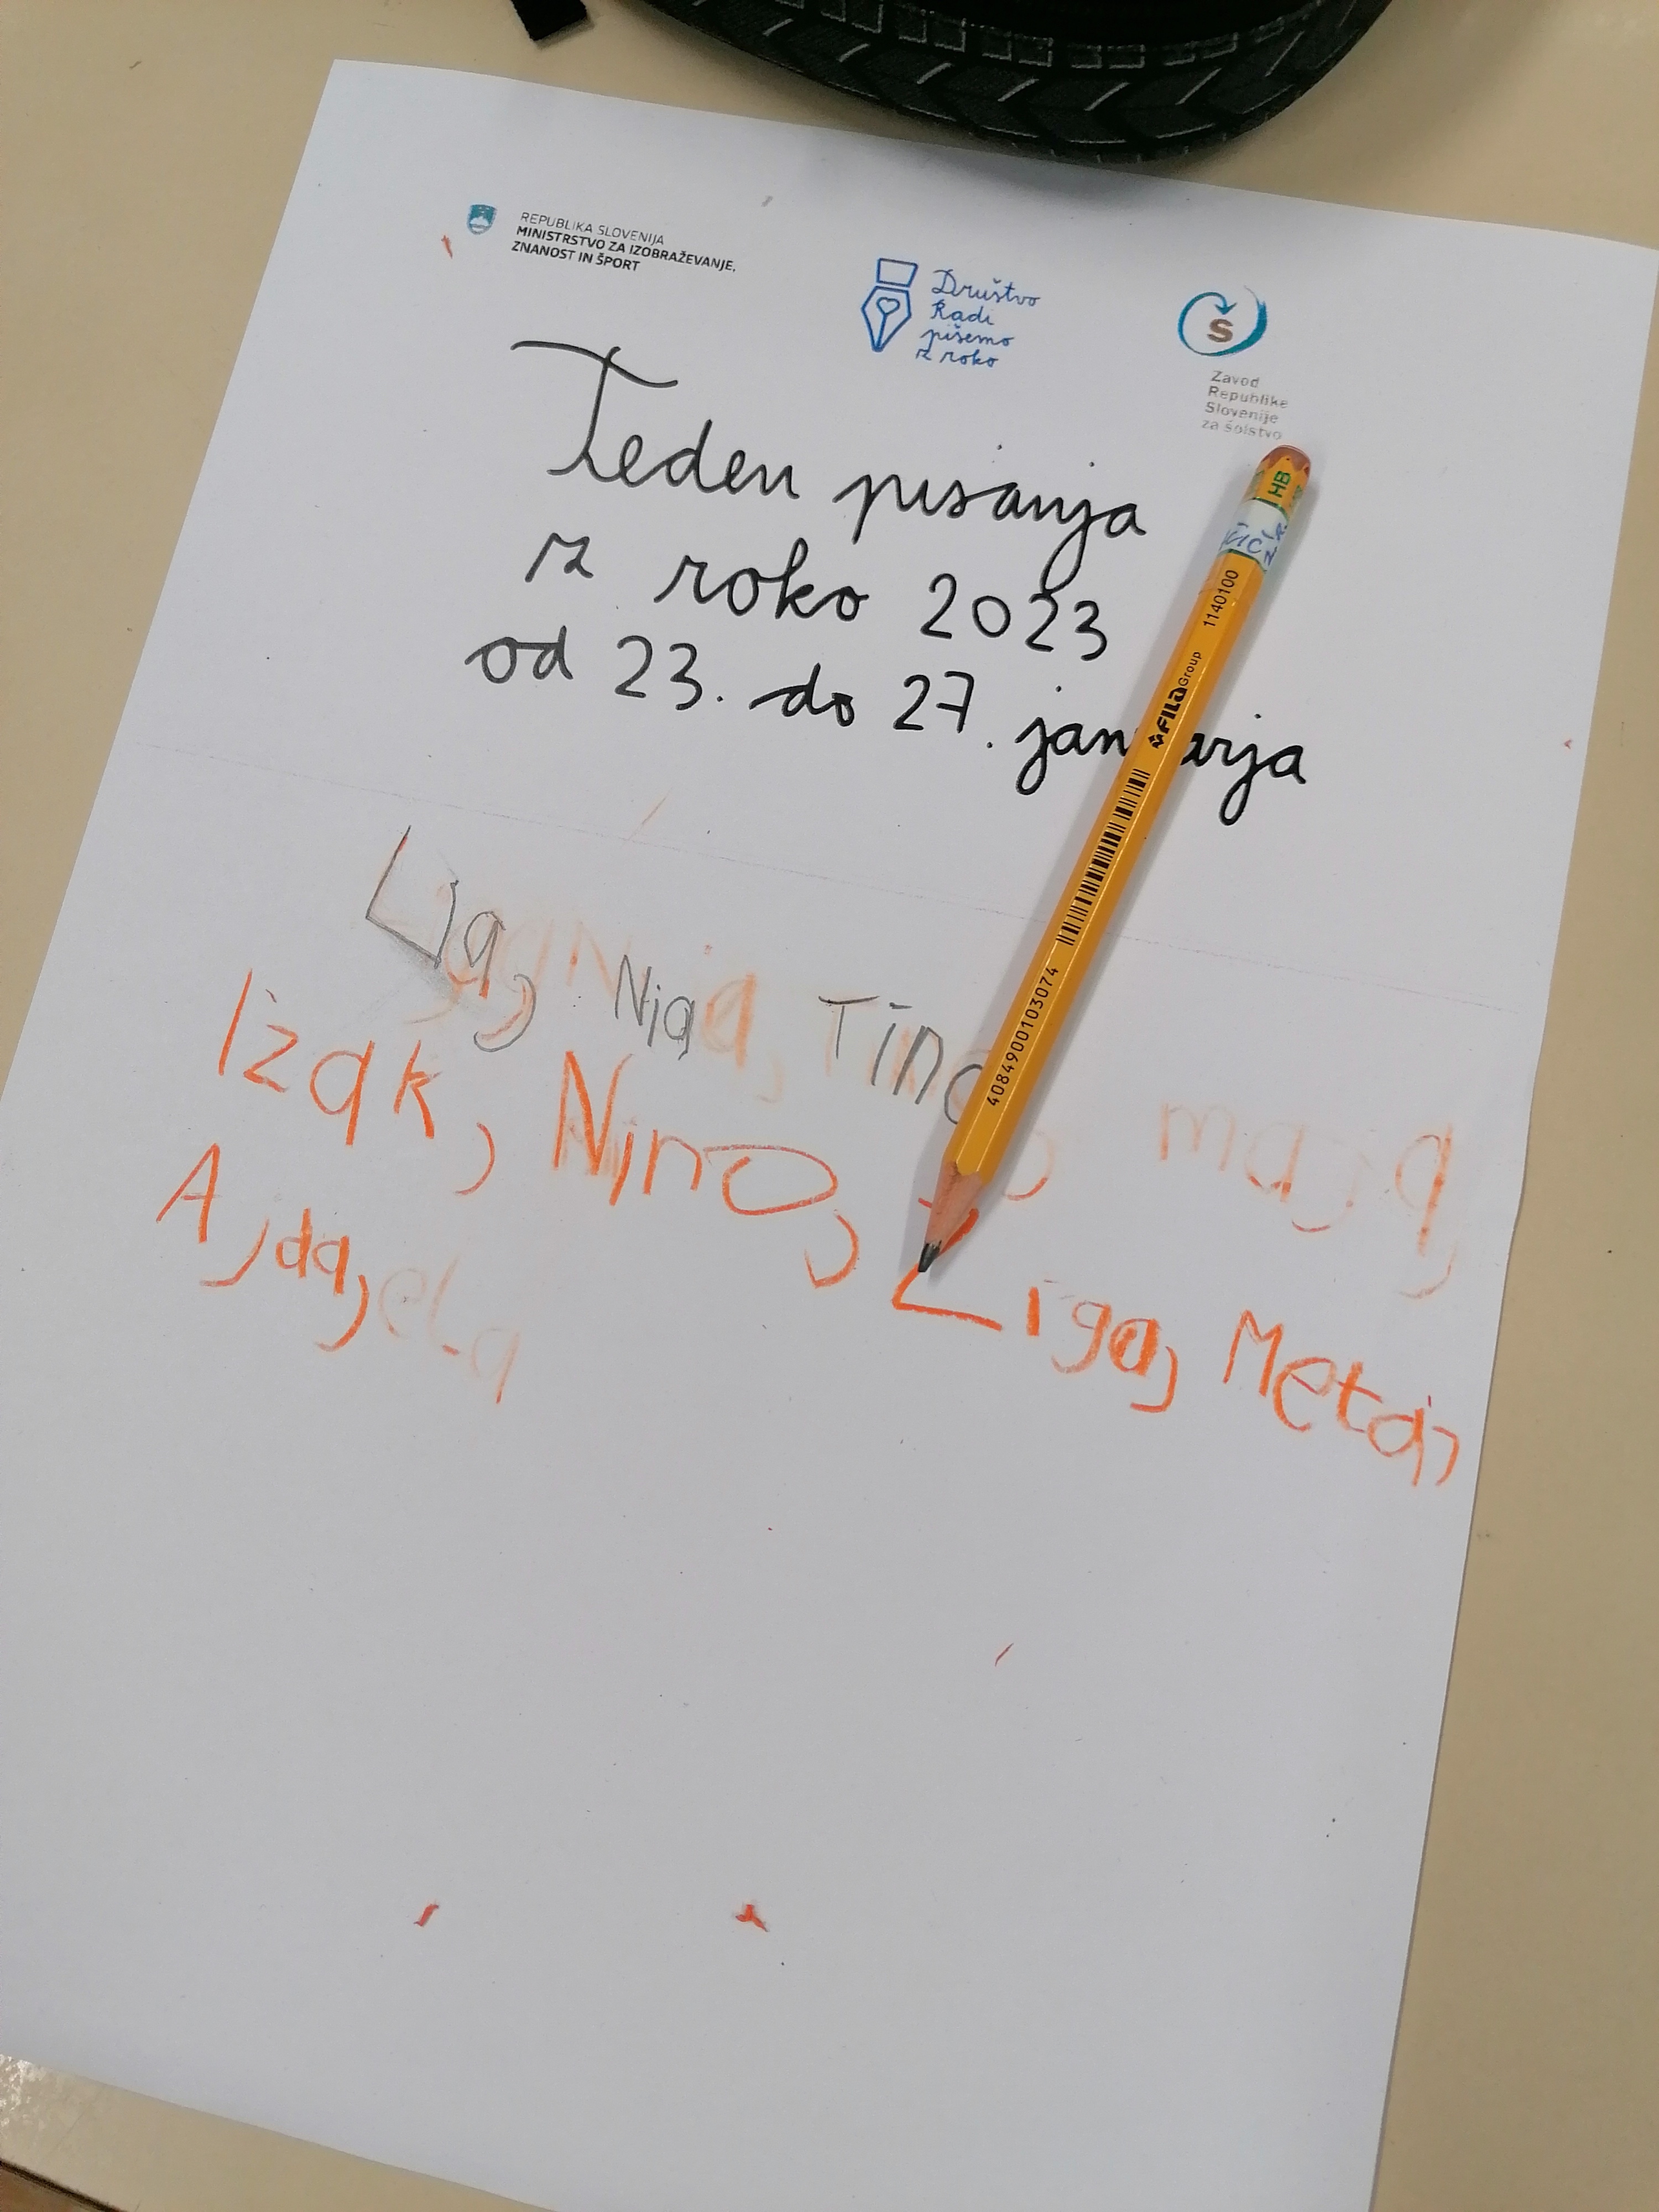 REPUBLIKA SLOVENIJA
MINISTRSTVO ZA IZOBRAŽEVANJE,
ZNANOST IN ŠPORT
Društvo
Radi
pišemo
z roko
Š
Zavod
Republike
Slovenije
za šolstvo
Teden pisanja
z roko 2023
od 23. do 27. januarja
HB
1140100
FILA Group
4084900103074
Lia, Nia, Tina, maja,
Izak, Nino, Žiga, Meta,
Ajda, ela